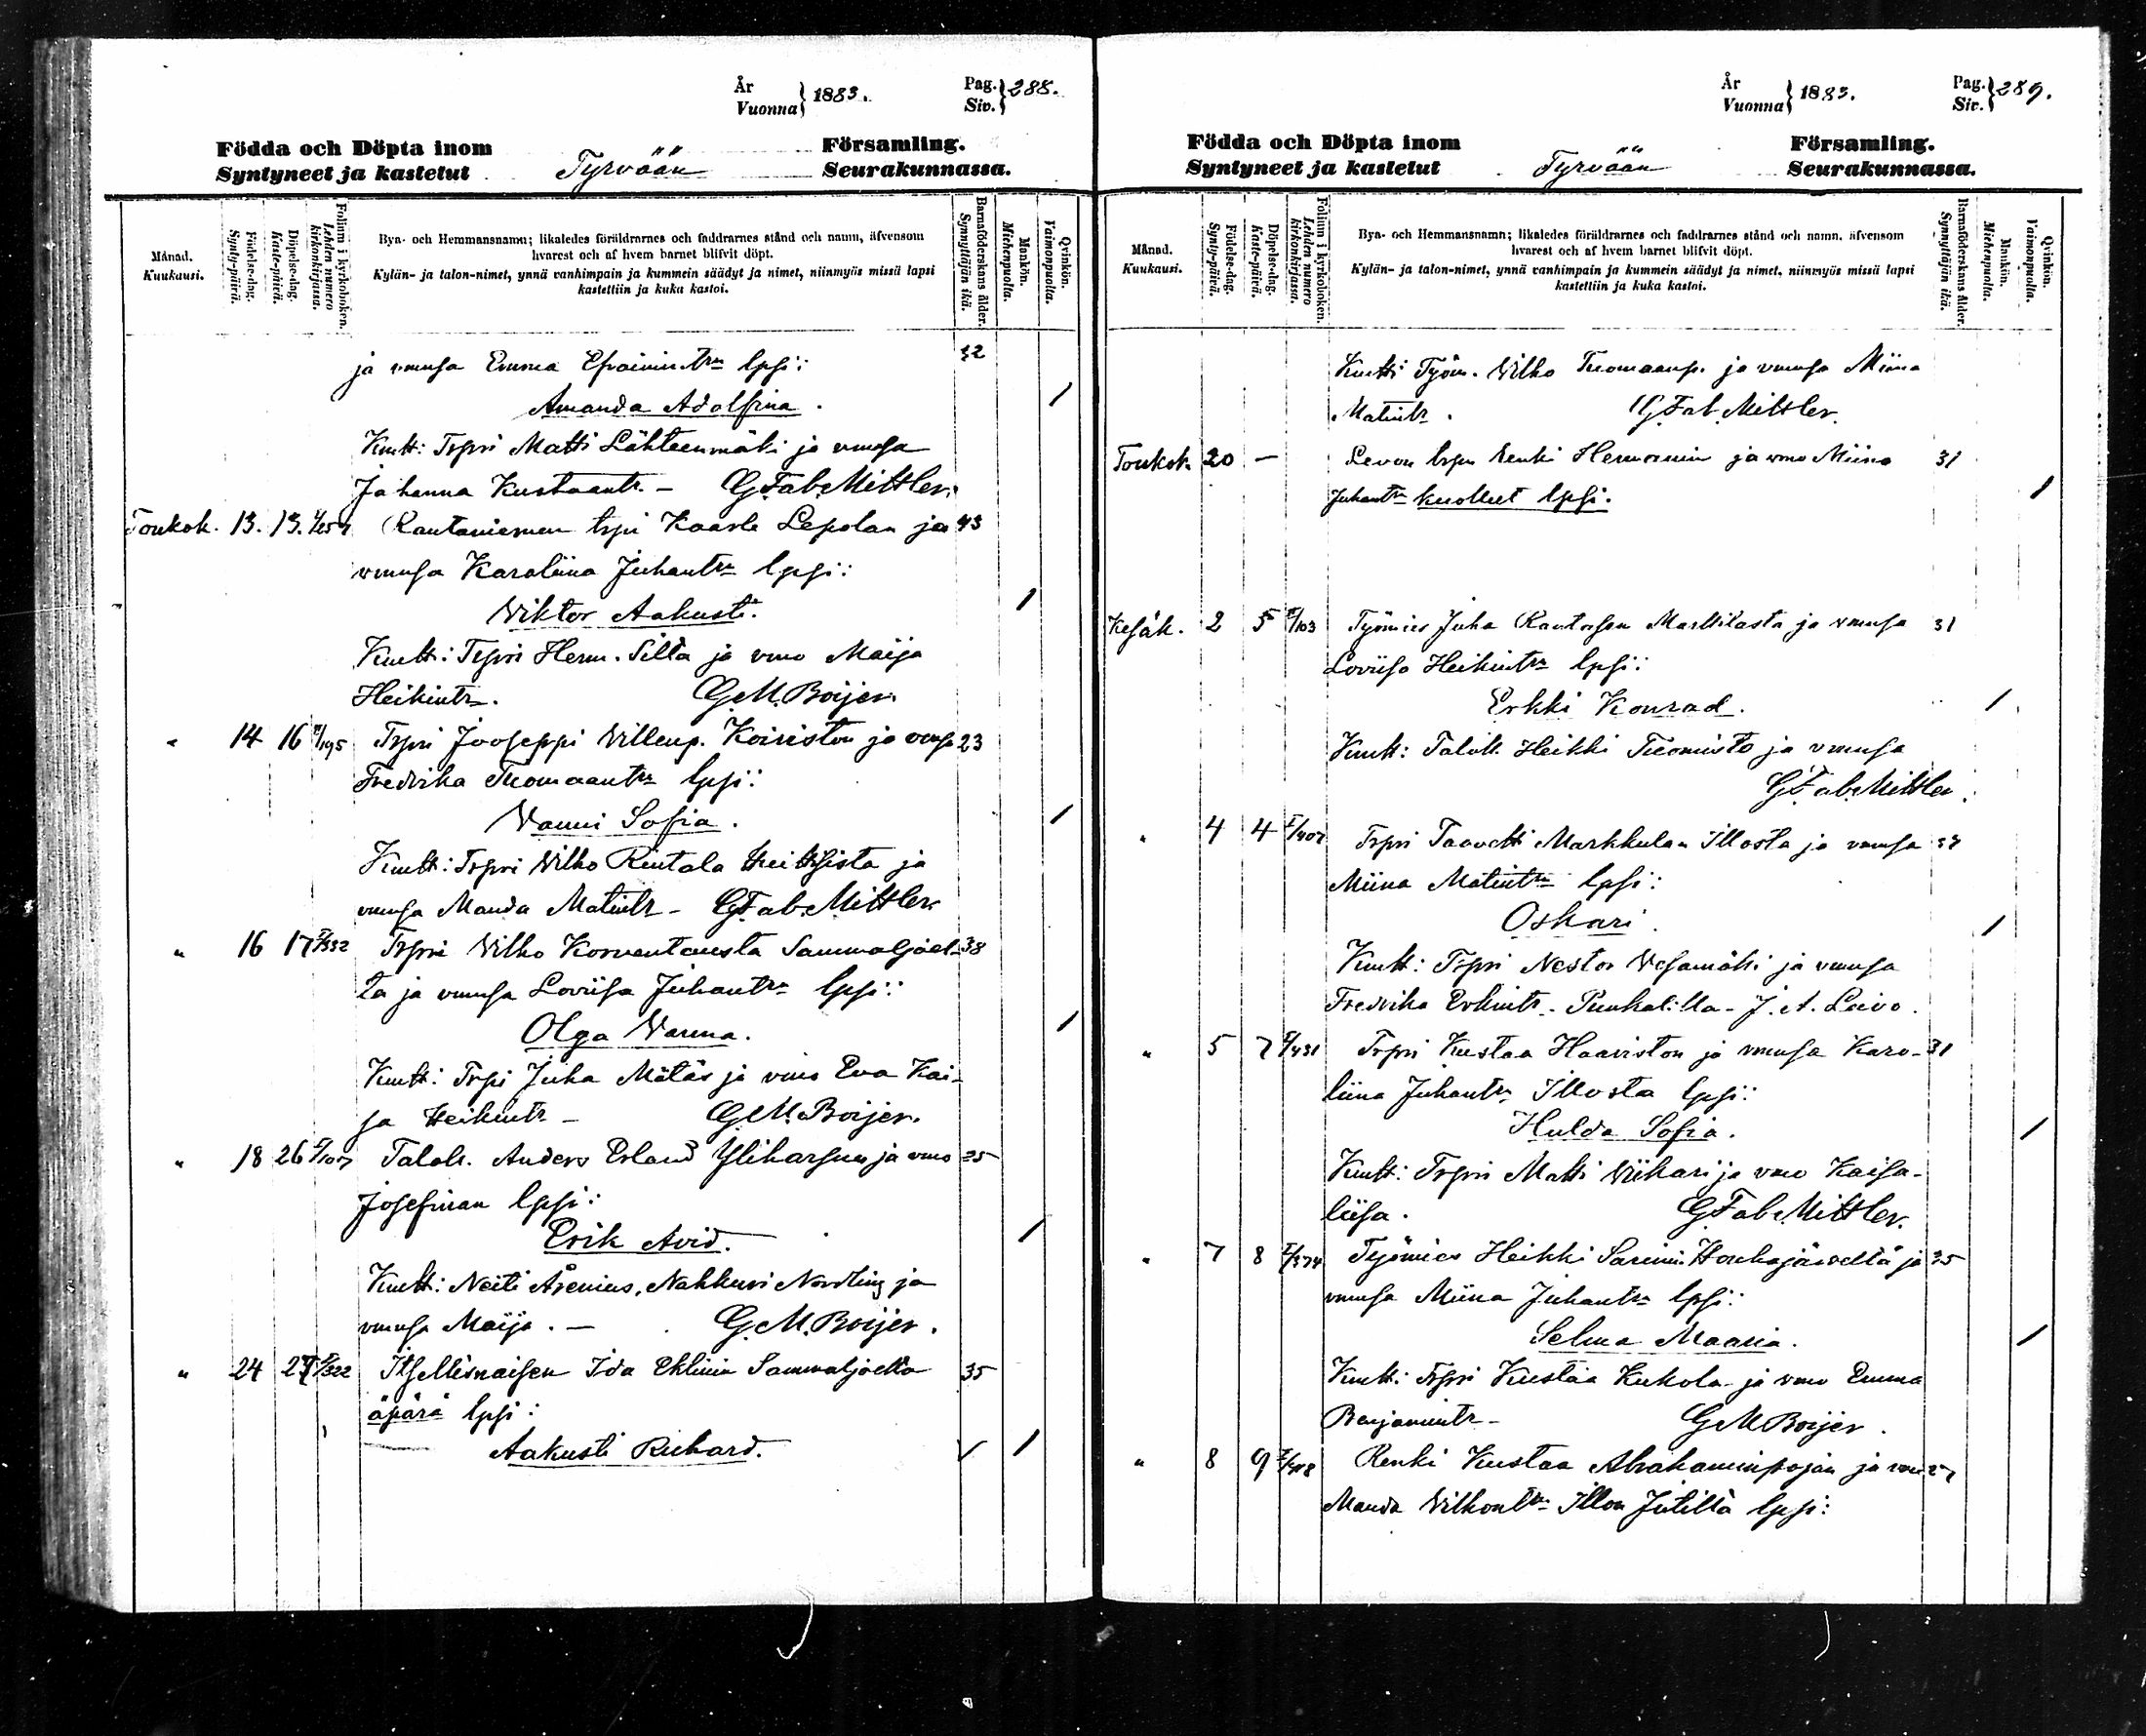 År
Vuonna } 1883.
Pag.
Siv. } 288.
Födda och Döpta inom Församling.
Syntyneet ja kastetut Tyrvään Seurakunnassa.
Månad.
Kuukausi.
Födelse-dag.
Synty-päivä.
Döpelse-dag.
Kaste-päivä.
Folium i kyrkoboken.
Lehden numero kirkonkirjassa.
Bya- och Hemmansnamn; likaledes föräldrarnes och faddrarnes stånd och namn, äfvensom
hvarest och af hvem barnet blifvit döpt.
Kylän- ja talon-nimet, ynnä vanhimpain ja kummein säädyt ja nimet, niinmyös missä lapsi
kastettiin ja kuka kastoi.
Barnaföderskans ålder.
Synnyttäjän ikä.
Mankön.
Miehenpuolta.
Qvinkön.
Vaimonpuolta.
ja vmnsa Emma Efraimintr lpsi: 32
Amanda Adolfina. /
Kmtt: Trpri Matti Lähteenmäki ja vmnsa
Johanna Kustaantr. - G.Fab.Mittler.
Toukok. 13. 13. Rautaniemen trpri Kaarle Lepolan ja 43
vmnsa Karaliina Juhantr lpsi:
Viktor Aakusti. /
Kmtt: Trpri Herm. Silta ja vmo Maija
Heikintr. G.M.Boijer.
" 14 16 /195 Trpri Jooseppi Villenp. Koiviston ja vmnsa 23
Fredrika Tuomaantr lpsi:
Vanni Sofia. /
Kmtt: Trpri Vilho Rintala ja
vmnsa Manda Matintr - G.Fab.Mittler.
" 16 17 /332 Trpri Vilho Korventausta Sammaljoel- 38
ta ja vmnsa Loviisa Juhantr lpsi:
Olga Varma. /
Kmtt: Trpi Juha Mätäs ja vmo Eva Kai-
sa Heikintr - G.M.Boijer.
" 18 26 /107 Taloll. Anders Erland Yliharsun ja vmo 25
Josefinan lpsi:
Erik Avid. /
Kmtt: Neiti Arenius, Nahkuri Nordling ja
vmnsa Maija. - G.M.Boijer.
" 24 27 /322 Itsellisnaisen Ida Eklinin Sammaljoelta 35
äpärä lpsi:
Aakusti Richard. /
År
Vuonna } 1883.
Pag.
Siv. } 289.
Födda och Döpta inom Församling.
Syntyneet ja kastetut Tyrvään Seurakunnassa.
Månad.
Kuukausi.
Födelse-dag.
Synty-päivä.
Döpelse-dag.
Kaste-päivä.
Folium i kyrkoboken.
Lehden numero kirkonkirjassa.
Bya- och Hemmansnamn; likaledes föräldrarnes och faddrarnes stånd och namn, äfvensom
hvarest och af hvem barnet blifvit döpt.
Kylän- ja talon-nimet, ynnä vanhimpain ja kummein säädyt ja nimet, niinmyös missä lapsi
kastettiin ja kuka kastoi.
Barnaföderskans ålder.
Synnyttäjän ikä.
Mankön.
Miehenpuolta.
Qvinkön.
Vaimonpuolta.
Kmtti Työm. Vilho Tuomaanp. ja vmnsa Miina
Matintr. G.Fab.Mittler.
Toukok. 20 - renki Hermannin ja vmo Miina 31
Juhantr kuollut lpsi. /
Kesäk. 2 5 /103 Työmies Juha Rantasen Marttilasta ja vmnsa 31
Loviisa Heikintr lpsi:
Erkki Konrad. /
Kmtt: Taloll. Heikki Tuomisto ja vmnsa
G.Fab.Mittler.
" 4 4 Trpri Taavetti Markkulan Illosta ja vmnsa
Miina Matintr lpsi:
Oskari. /
Kmtt: Trpri Nestor Vesamäki ja vmnsa
Fredrika Erkintr. Punkalilla - J. A. Leivo.
" 5 7 /431 Trpri Kustaa Haaviston ja vmnsa Karo- 31
liina Juhantr Illosta lpsi:
Hulda Sofia. /
Kmtt: Trpri Matti Viikari ja vmo Kaisa-
liisa. G.Fab.Mittler.
" 7 8 /374 Työmies Heikki Sarinin Houhajärveltä ja 35
vmnsa Miina Juhantr lpsi:
Selma Maaria. /
Kmtt: Trpri Kustaa Kukola ja vmo Emma
Benjamintr - G.M.Boijer.
" 8 9 Renki Kustaa Abrahaminpojan ja vmo 27
Manda Vilhontr Illon Jutilla lpsi: